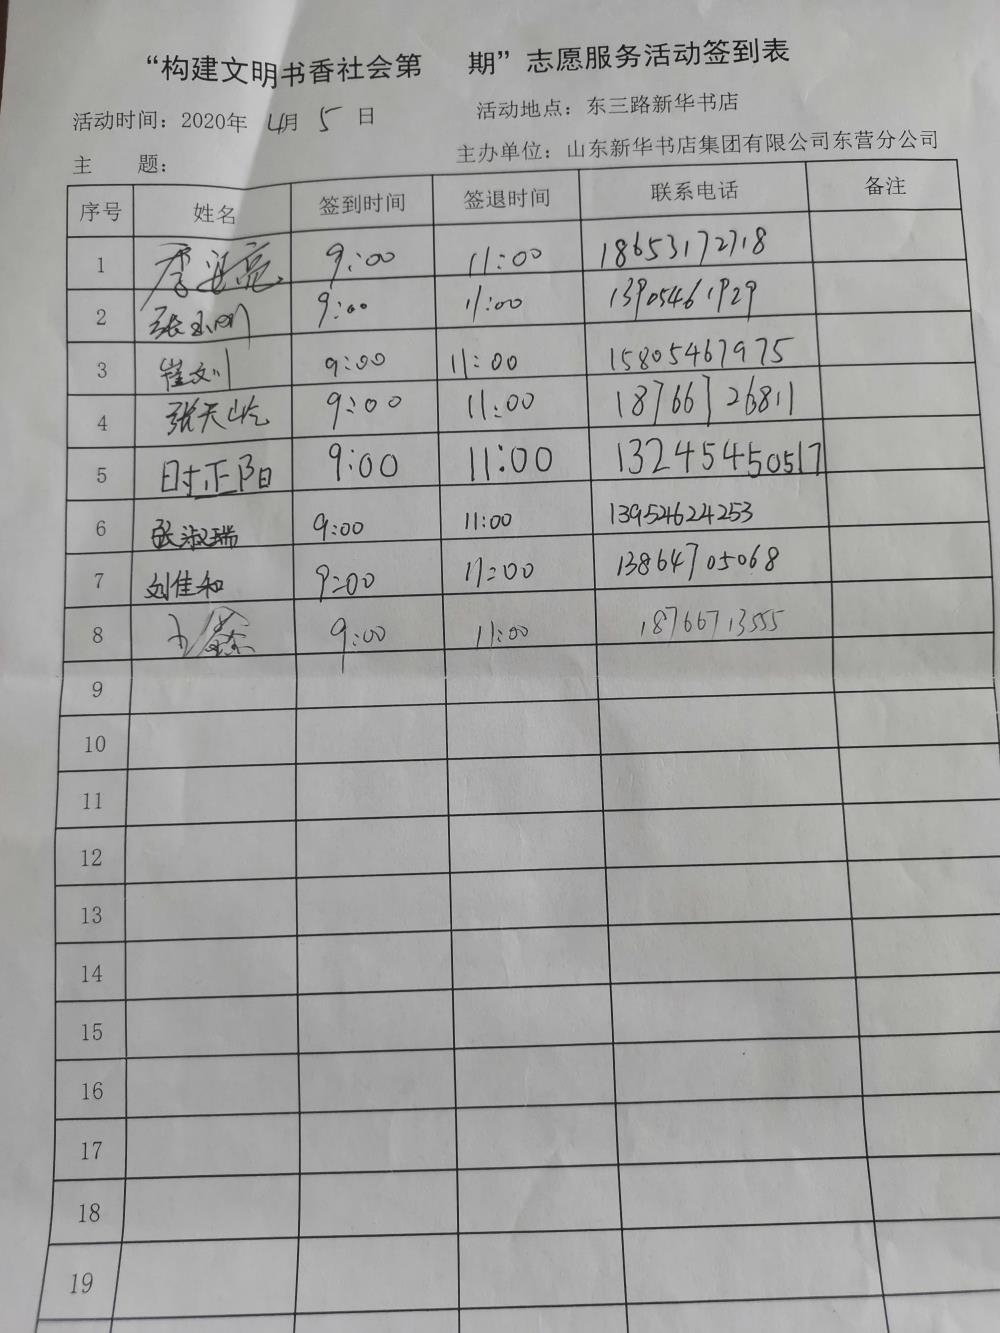 “构建文明书香社会第 期”志愿服务活动签到表
活动时间：2020年 4月 5 日 活动地点：东三路新华书店
主 题： 主办单位：山东新华书店集团有限公司东营分公司
序号 姓名 签到时间 签退时间 联系电话 备注
1 李亮 9:00 11:00 18653172718
2 张 9:00 11:00 13905461929
3 崔文川 9:00 11:00 15805467975
4 张天屹 9:00 11:00 18766726811
5 时正阳 9:00 11:00 13245450517
6 张淑瑞 9:00 11:00 13954624253
7 刘佳和 9:00 11:00 13864705068
8 9:00 11:00 18766713555
9
10
11
12
13
14
15
16
17
18
19